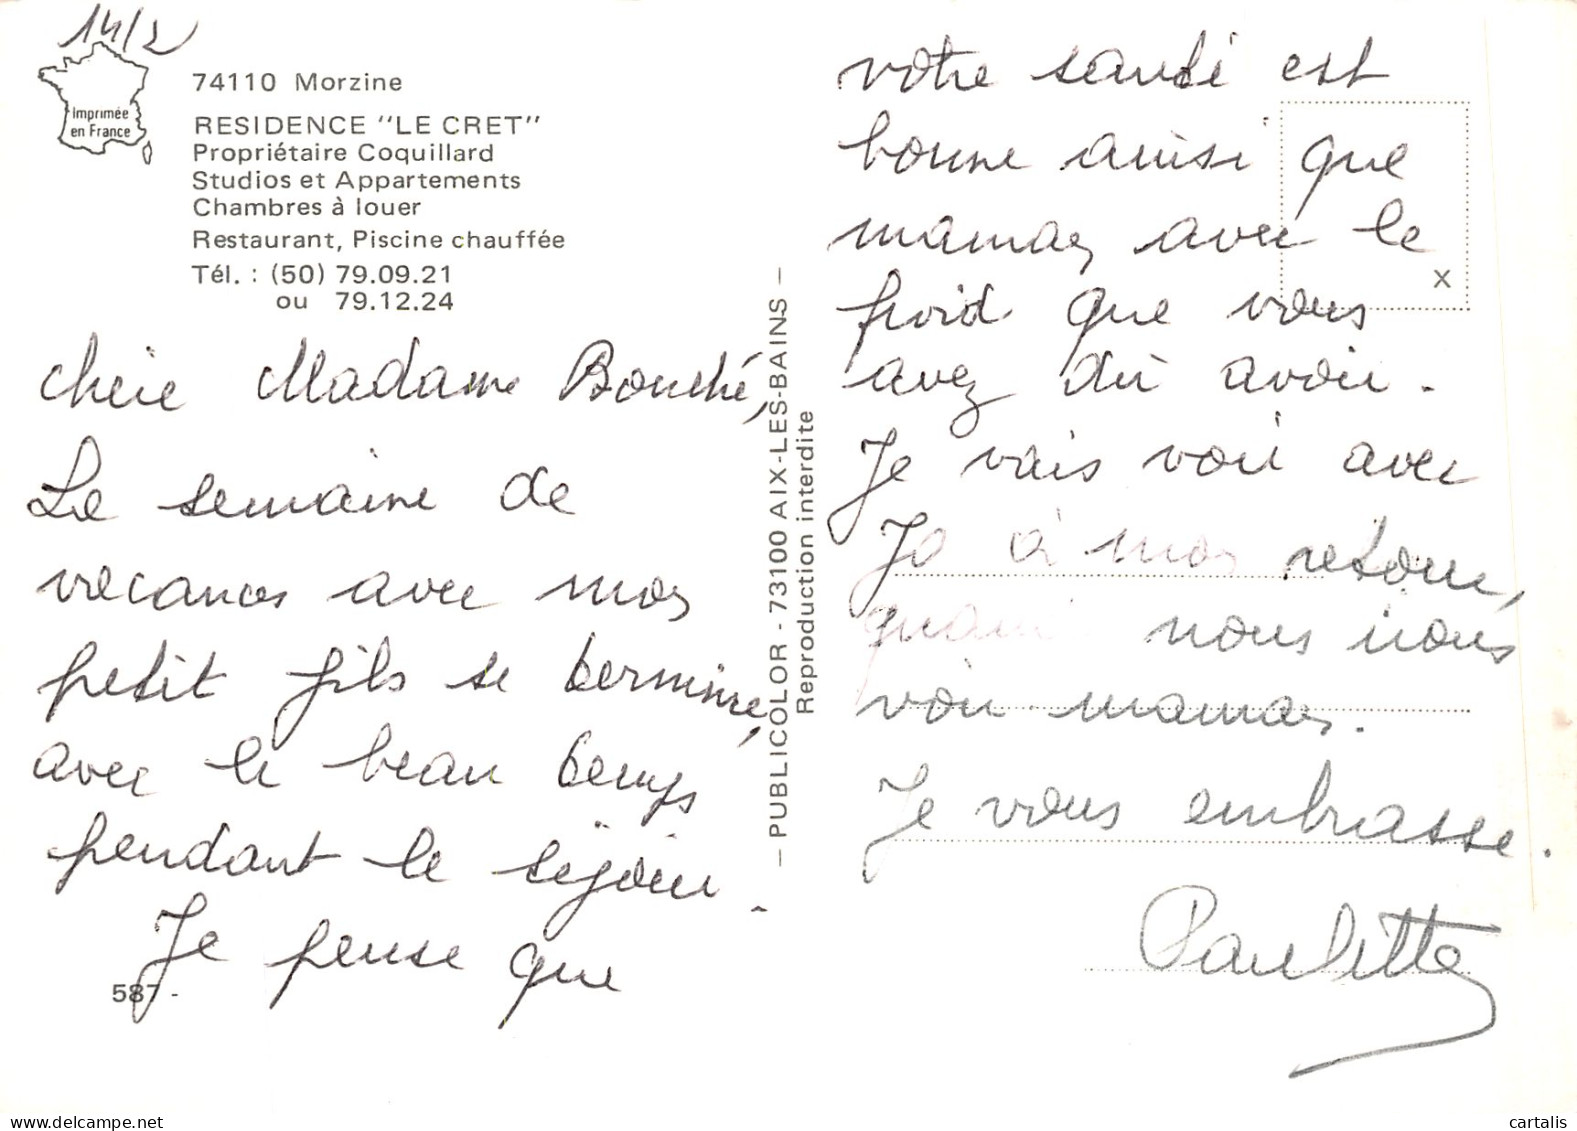 14/2
Imprimée
en France
74110 Morzine
RESIDENCE "LE CRET"
Propriétaire Coquillard
Studios et Appartements
Chambres à louer
Restaurant, Piscine chauffée
Tél. : (50) 79.09.21
ou 79.12.24
chère Madame Bouché,
La semaine de
vacances avec mon
petit fils se termine,
avec le beau temps
pendant le séjour.
Je pense que
587 -
— PUBLICOLOR - 73100 AIX-LES-BAINS —
Reproduction interdite
votre santé est
bonne ainsi que
maman avec le
froid que vous
avez dû avoir.
Je vais voir avec
Jo à mon retour,
quand nous irons
voir maman.
Je vous embrasse.
Paulette
X
cartalis